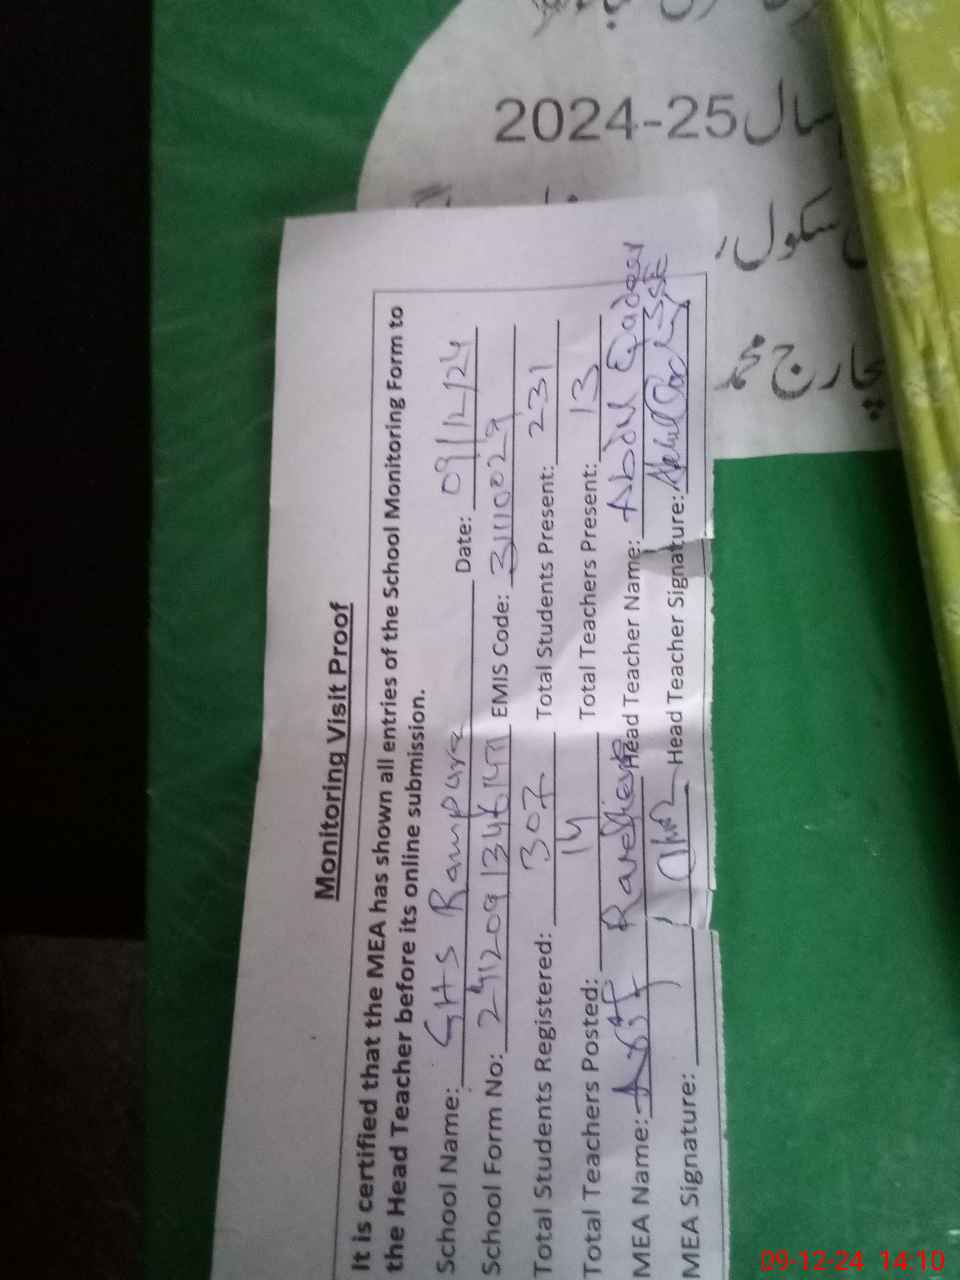 سال 2024-25
سکول
چارج محمد
Monitoring Visit Proof
It is certified that the MEA has shown all entries of the School Monitoring Form to
the Head Teacher before its online submission.
School Name: GHS Rampura Date: 09/12/24
School Form No: EMIS Code: 31110029
Total Students Registered: 307 Total Students Present: 231
Total Teachers Posted: 14 Total Teachers Present: 13
MEA Name: Asif Head Teacher Name: Abdul Qadeer
MEA Signature: Head Teacher Signature:
09-12-24 14:10